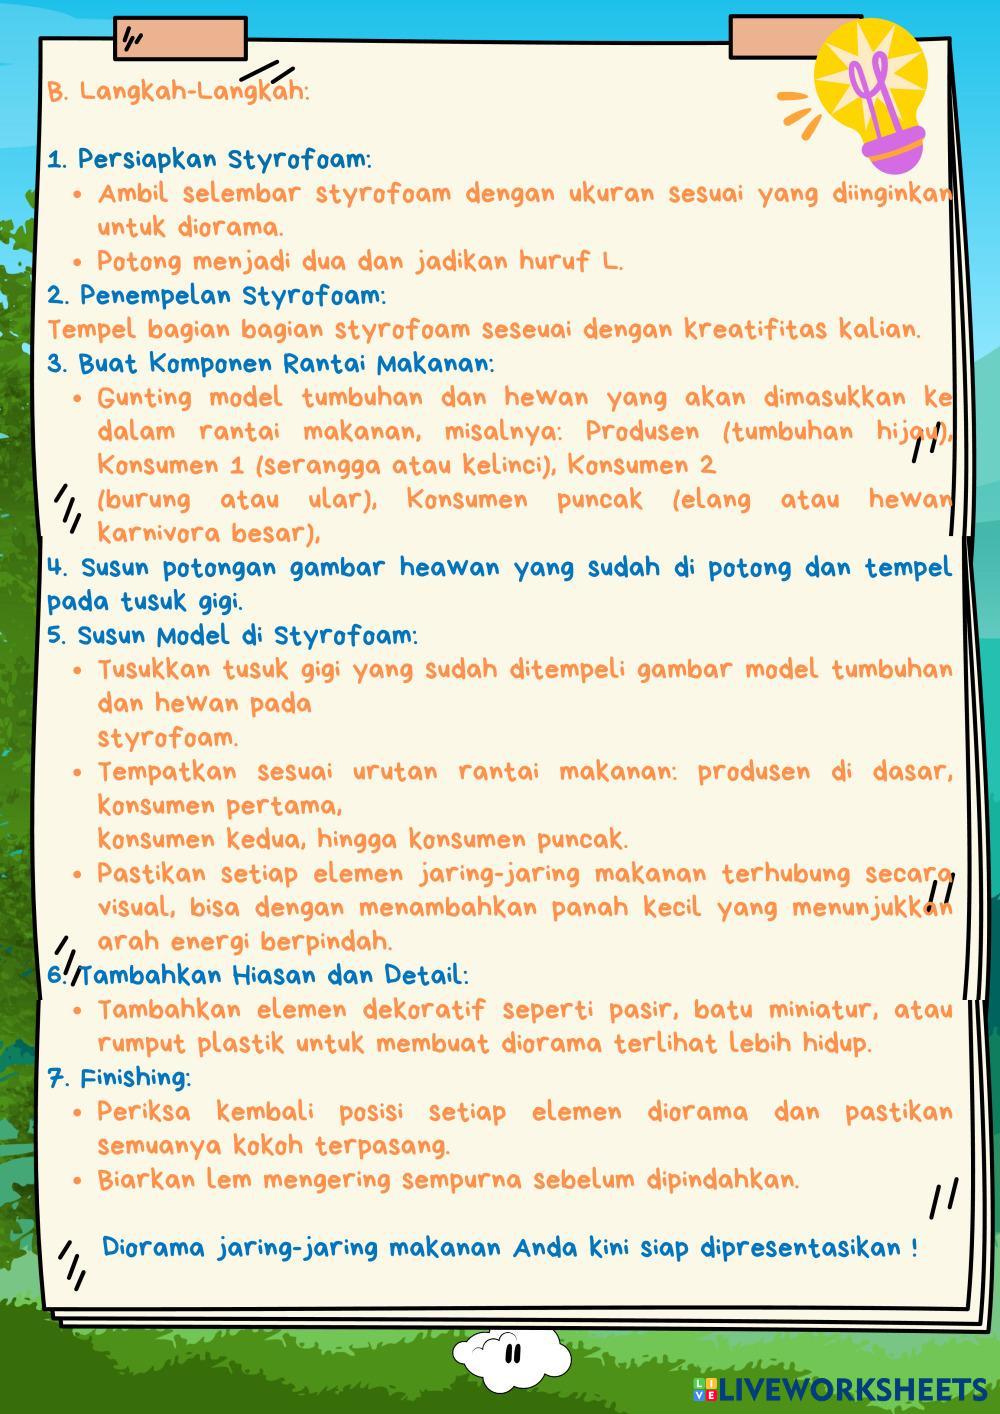 B. Langkah-Langkah:
1. Persiapkan Styrofoam:
• Ambil selembar styrofoam dengan ukuran sesuai yang diinginkan
untuk diorama.
• Potong menjadi dua dan jadikan huruf L.
2. Penempelan Styrofoam:
Tempel bagian bagian styrofoam seseuai dengan kreatifitas kalian.
3. Buat Komponen Rantai Makanan:
• Gunting model tumbuhan dan hewan yang akan dimasukkan ke
dalam rantai makanan, misalnya: Produsen (tumbuhan hijau),
Konsumen 1 (serangga atau kelinci), Konsumen 2
(burung atau ular), Konsumen puncak (elang atau hewan
karnivora besar),
4. Susun potongan gambar heawan yang sudah di potong dan tempel
pada tusuk gigi.
5. Susun Model di Styrofoam:
• Tusukkan tusuk gigi yang sudah ditempeli gambar model tumbuhan
dan hewan pada
styrofoam.
• Tempatkan sesuai urutan rantai makanan: produsen di dasar,
konsumen pertama,
konsumen kedua, hingga konsumen puncak.
• Pastikan setiap elemen jaring-jaring makanan terhubung secara
visual, bisa dengan menambahkan panah kecil yang menunjukkan
arah energi berpindah.
6. Tambahkan Hiasan dan Detail:
• Tambahkan elemen dekoratif seperti pasir, batu miniatur, atau
rumput plastik untuk membuat diorama terlihat lebih hidup.
7. Finishing:
• Periksa kembali posisi setiap elemen diorama dan pastikan
semuanya kokoh terpasang.
• Biarkan lem mengering sempurna sebelum dipindahkan.
Diorama jaring-jaring makanan Anda kini siap dipresentasikan !
11
LIVE LIVEWORKSHEETS